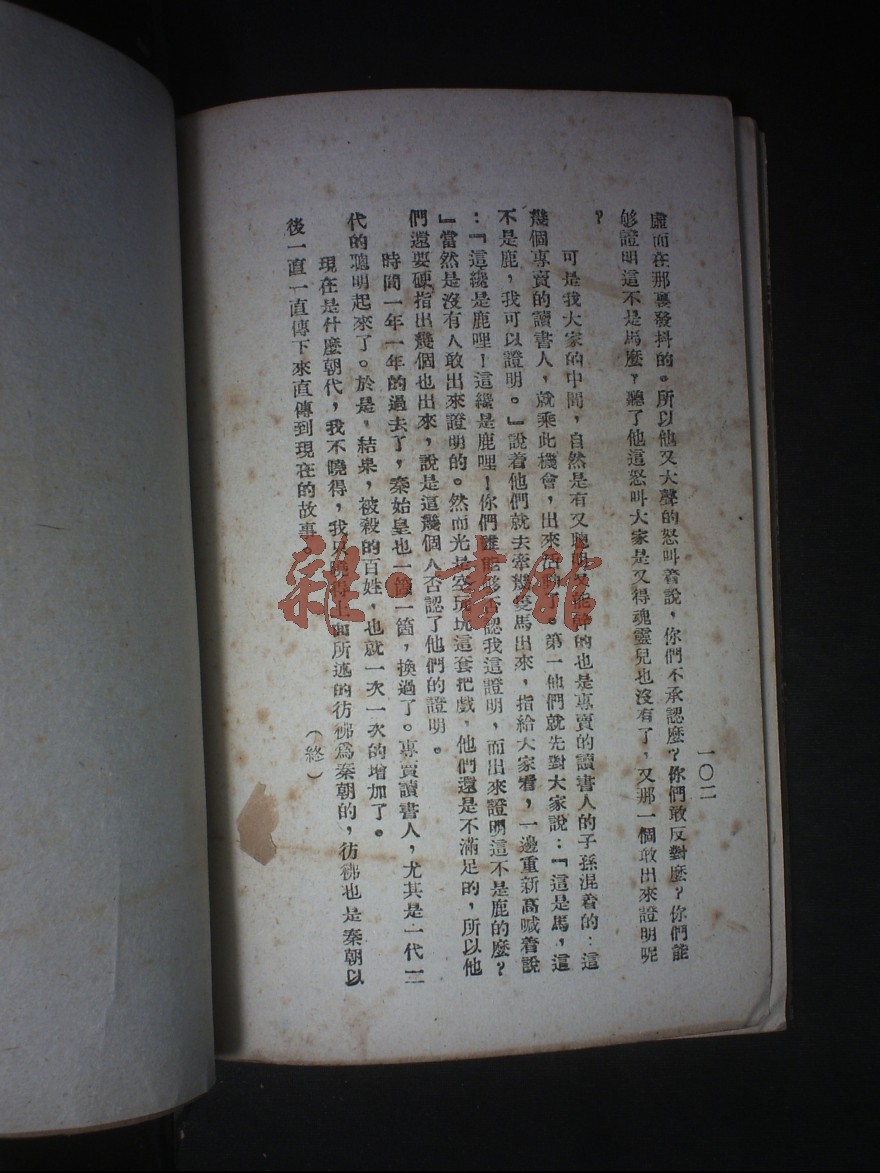 一〇二
虛而在那裏發抖的。所以他又大聲的怒叫着說，你們不承認麼？你們敢反對麼？你們能
够證明這不是馬麼？聽了他這怒叫大家是又得魂靈兒也沒有了，又那一個敢出來證明呢
？
可是我大家的中間，自然是有又聰明又能幹的也是專賣的讀書人的子孫混着的：這
幾個專賣的讀書人，就乘此機會，出來活動了。第一他們就先對大家說：『這是馬，這
不是鹿，我可以證明。』說着他們就去牽幾隻馬出來，指給大家看，一邊重新高喊着說
：『這纔是鹿哩！這纔是鹿哩！你們誰能够否認我這證明，而出來證明這不是鹿的麼？
』當然是沒有人敢出來證明的。然而光是空玩玩這套把戲，他們還是不滿足的，所以他
們還要硬指出幾個也出來，說是這幾個人否認了他們的證明。
時間一年一年的過去了，秦始皇也一箇一箇，換過了。專賣讀書人，尤其是一代一
代的聰明起來了。於是，結果，被殺的百姓，也就一次一次的增加了。
現在是什麼朝代，我不曉得，我只曉得上面所述的彷彿爲秦朝的，彷彿也是秦朝以
後一直一直傳下來直傳到現在的故事。
（終）
雜·書館